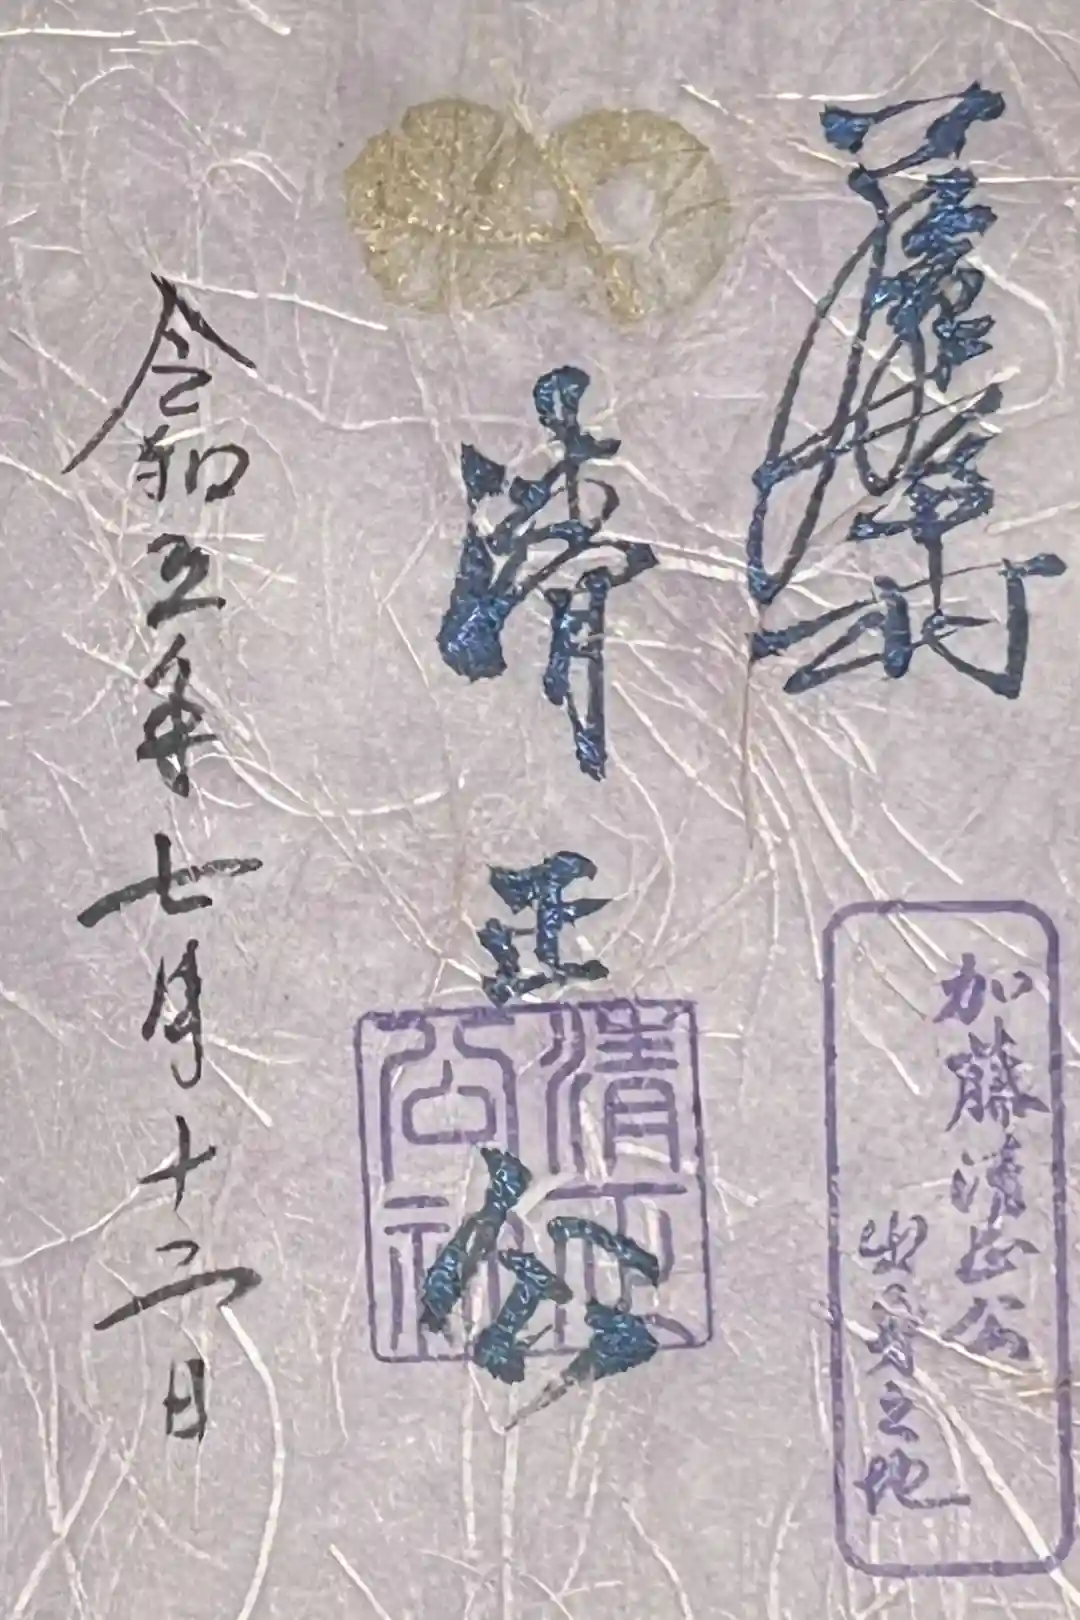 加藤清正公
出身之地
清正公
清正
公
令和五年七月十二日